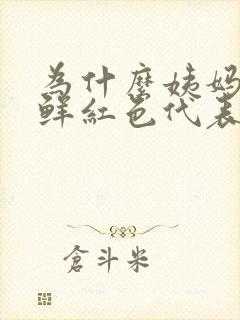 為什麼姨媽
鮮紅色代表
倉斗米